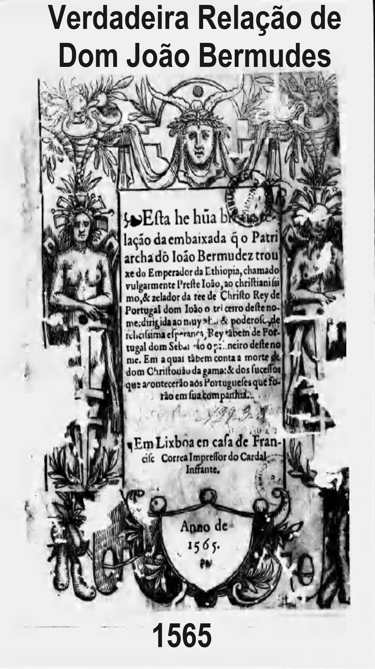 Verdadeira Relação de
Dom João Bermudes
Esta he hũa
lação da embaixada q̃ o Patri
archa dõ Ioão Bermudez trou
xe do Emperador da Ethiopia, chamado
vulgarmente Preste Ioão, ao christianissi
mo, & zelador da fee de Christo Rey de
Portugal dom Ioão o terceiro deste no-
me, dirigida ao muy & poderoso, de
felicissima esperança, Rey tãbem de Por-
tugal dom deste no
me. Em a qual tãbem conta a morte de
dom Christouão da gama: & dos sucessos
que acontecerão aos Portugueses que fo-
rão em sua companhia.
Em Lixboa en casa de Fran-
cisc Correa Impressor do Cardal
Inffante.
Anno de
1565.
1565